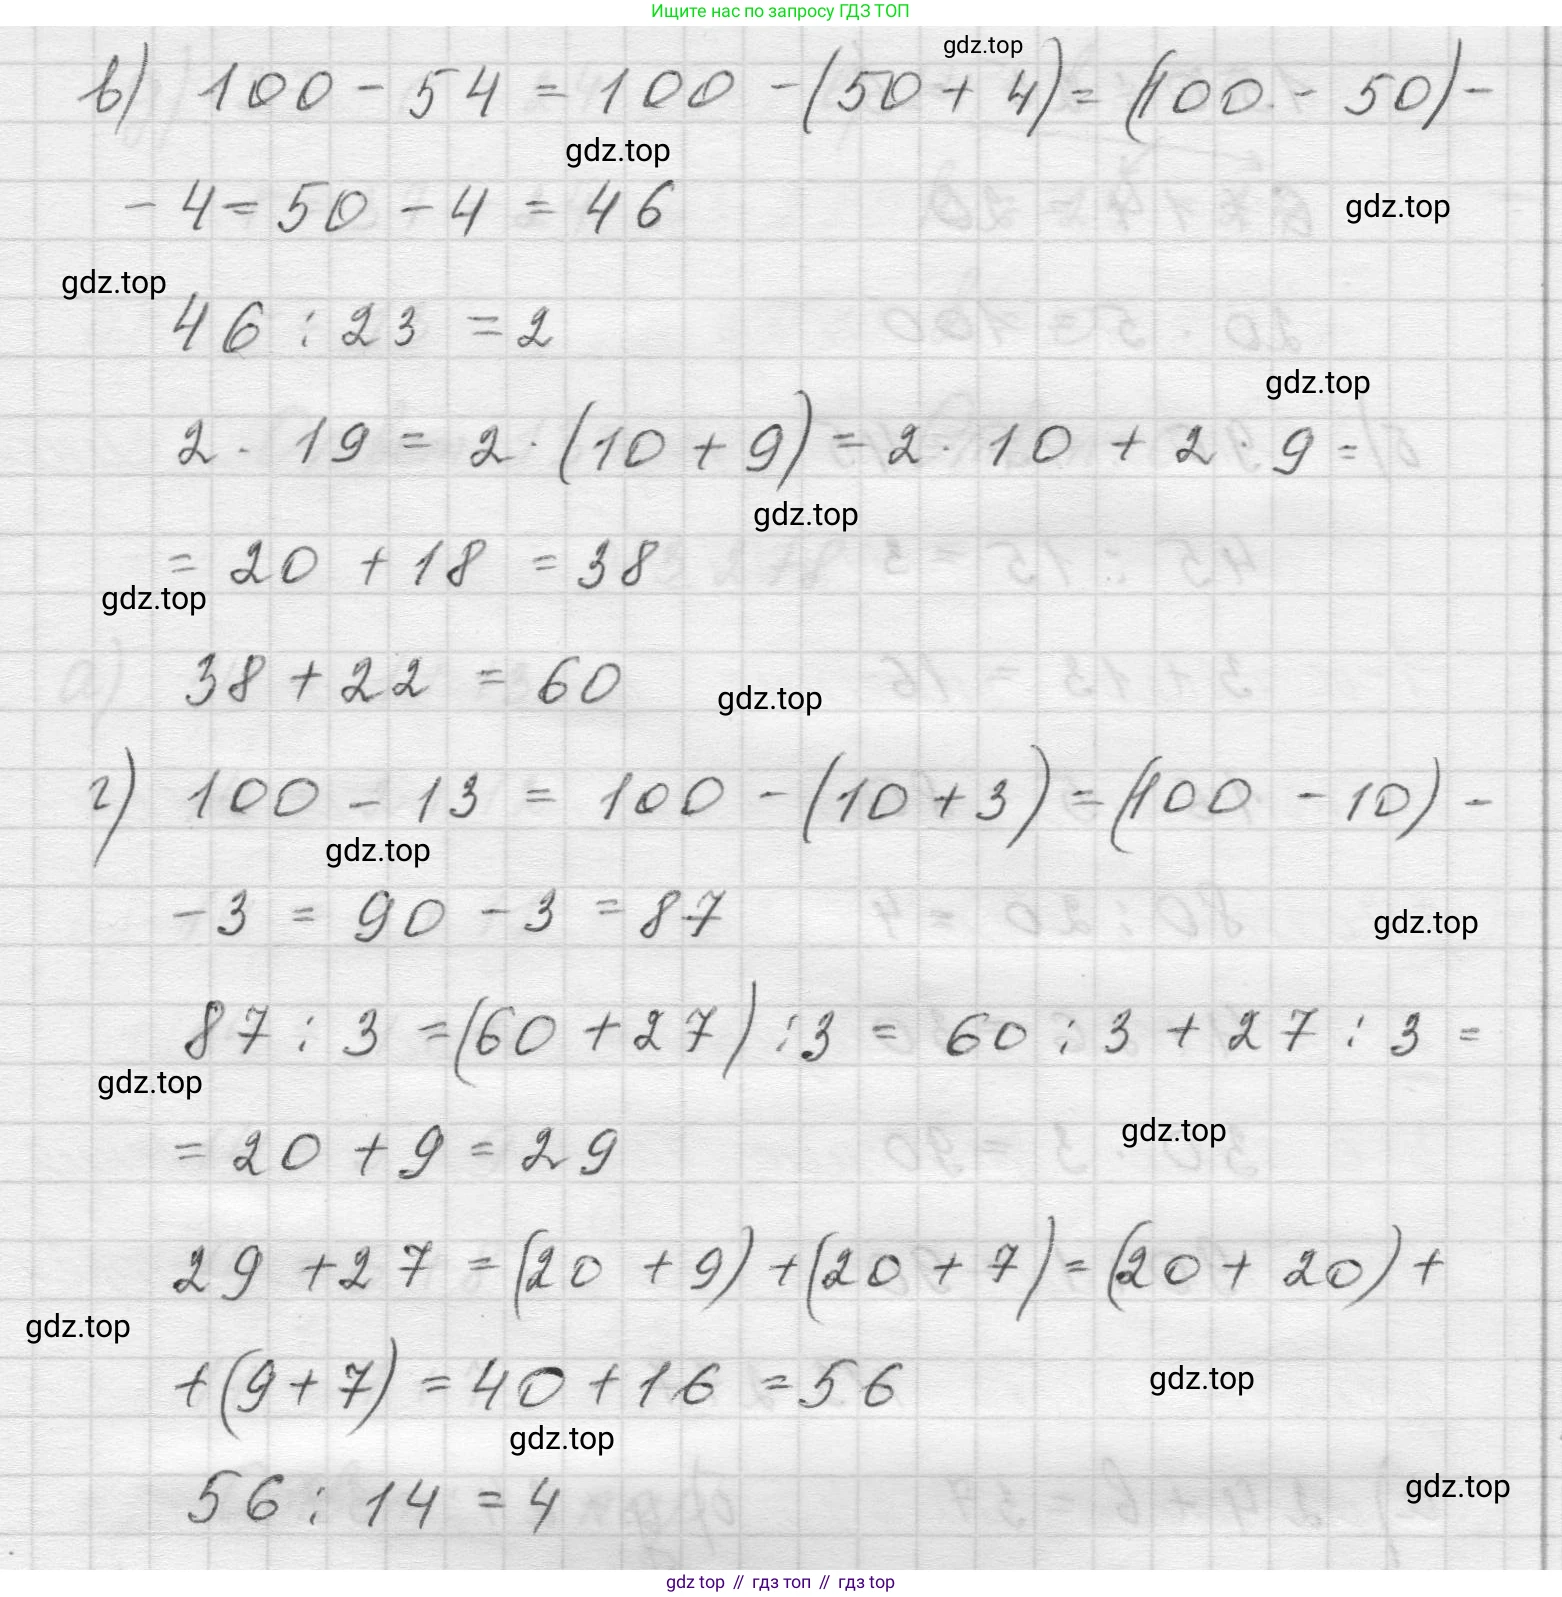 Ищите нас по запросу ГДЗ ТОП
gdz.top
в) 100 - 54 = 100 - (50 + 4) = (100 - 50) -
gdz.top
- 4 = 50 - 4 = 46
gdz.top
gdz.top
46 : 23 = 2
gdz.top
2 · 19 = 2 · (10 + 9) = 2 · 10 + 2 · 9 =
gdz.top
= 20 + 18 = 38
gdz.top
38 + 22 = 60
gdz.top
г) 100 - 13 = 100 - (10 + 3) = (100 - 10) -
gdz.top
- 3 = 90 - 3 = 87
gdz.top
87 : 3 = (60 + 27) : 3 = 60 : 3 + 27 : 3 =
gdz.top
gdz.top
= 20 + 9 = 29
29 + 27 = (20 + 9) + (20 + 7) = (20 + 20) +
gdz.top
+ (9 + 7) = 40 + 16 = 56
gdz.top
gdz.top
56 : 14 = 4
gdz.top
gdz top // гдз топ // гдз top